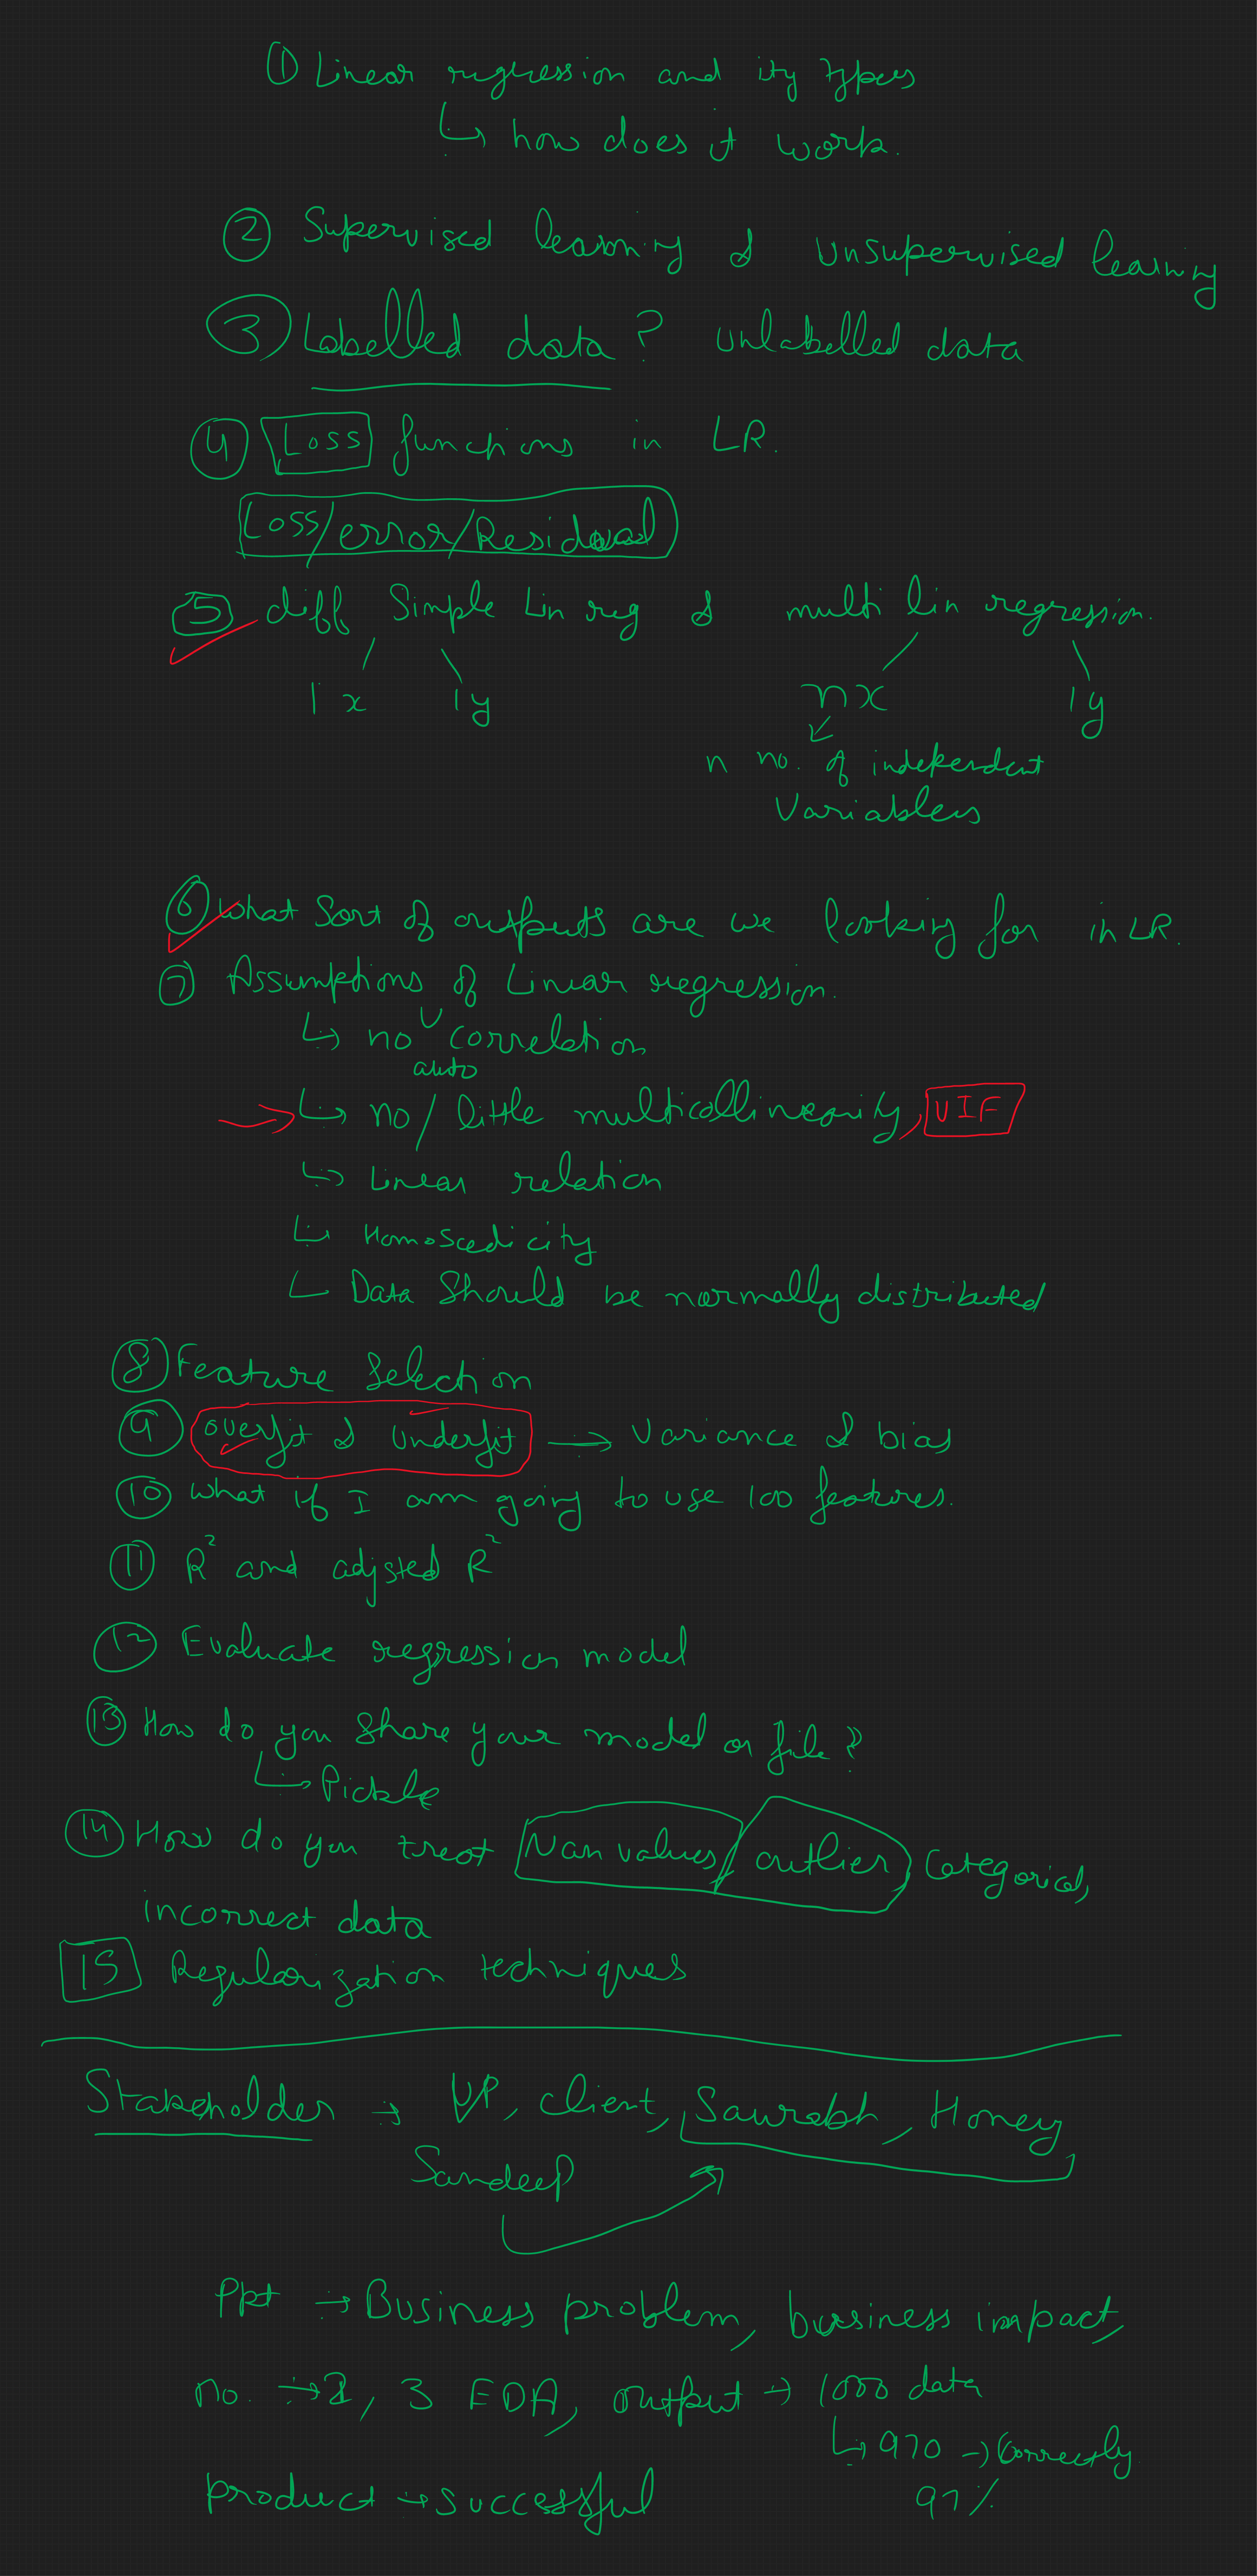 ① Linear regression and ity types
↳ how does it work.
② Supervised learning & unsupervised learning
③ Labelled data? unlabelled data
④ Loss functions in LR.
Loss/error/Residual
⑤ diff Simple Lin reg & multi lin regression.
1x 1y nx 1y
n no. of independent
Variables
⑥ what Sort of outputs are we looking for in LR.
⑦ Assumptions of Linear regression.
↳ no correlation
auto
→ ↳ no/little multicollinearity, VIF
↳ Linear relation
↳ Homoscedicity
↳ Data Should be normally distributed
⑧ Feature Selection
⑨ overfit & underfit → Variance & bias
⑩ what if I am going to use 100 features.
⑪ R² and adjsted R²
⑫ Evaluate regression model
⑬ How do you share your model or file?
↳ Pickle
⑭ How do you treat Nan values/outlier, Categorical,
incorrect data
15 Regularization techniques
Stakeholder → VP, client, Saurabh, Honey
Sandeep
Ppt → Business problem, business impact,
no. → 2, 3 EDA, output → 1000 data
↳ 970 → Correctly
product → successful 97%